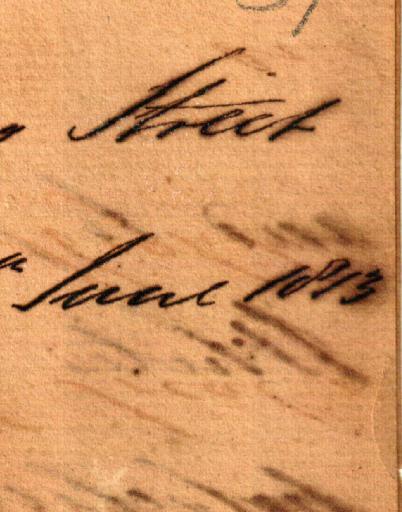 Street
June 1813